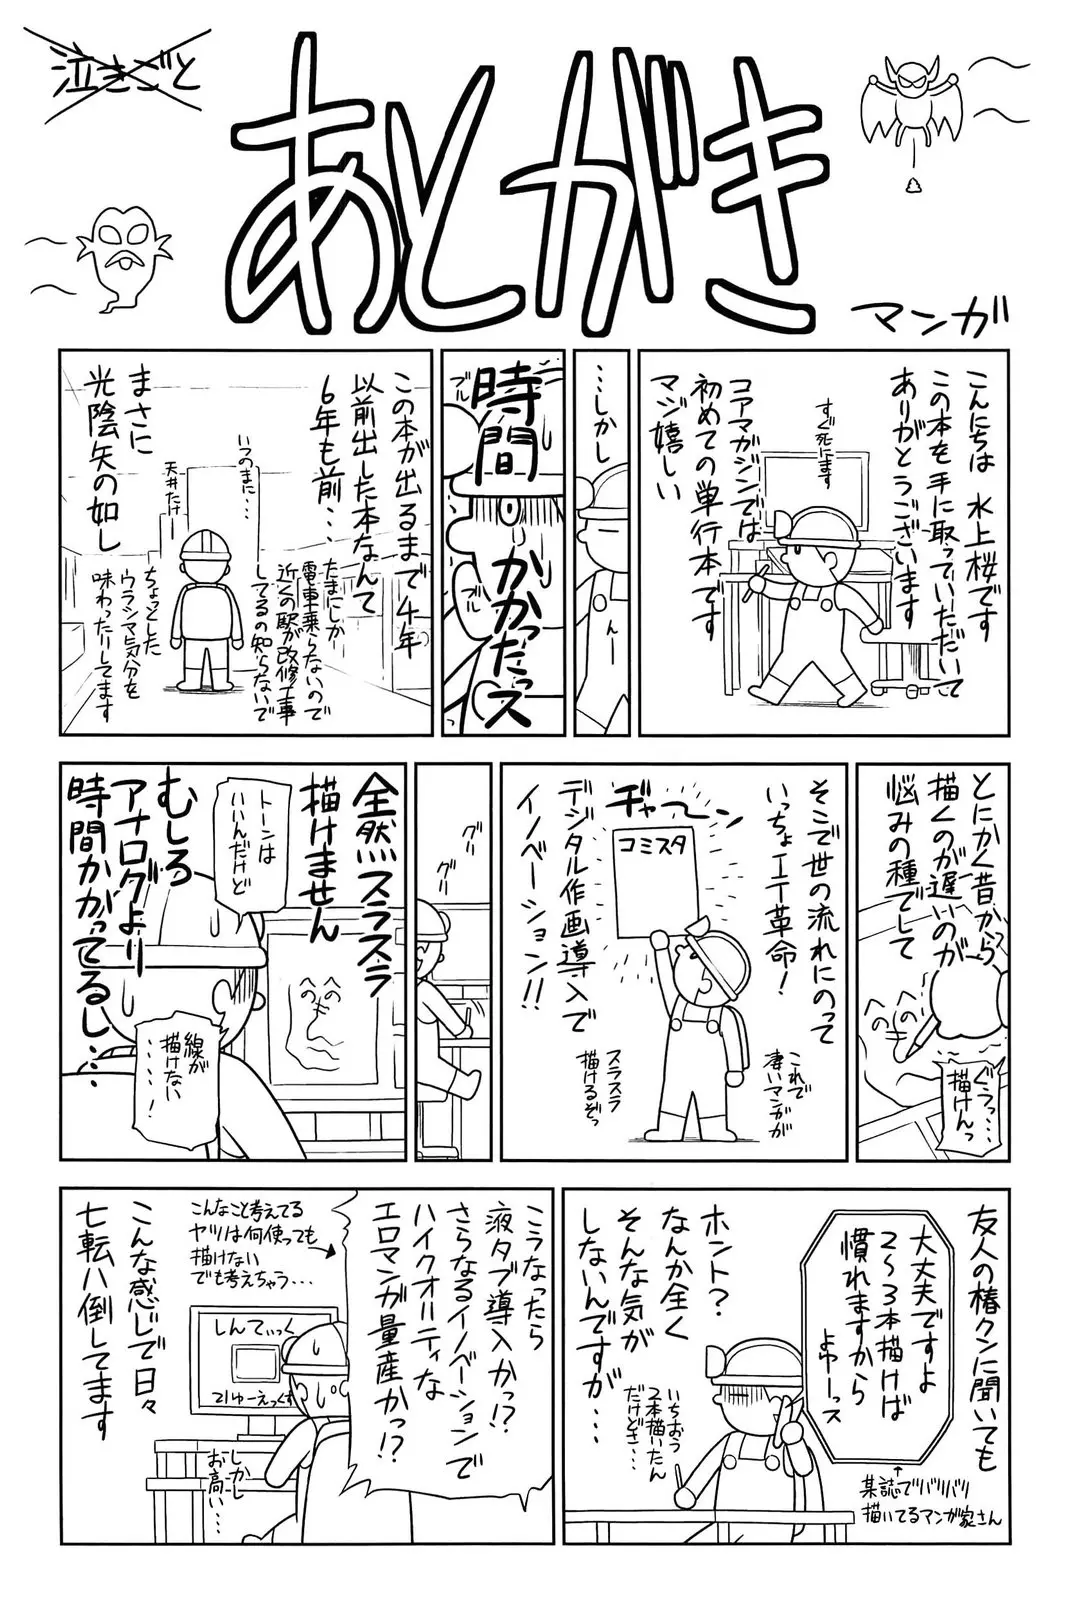 泣きごと
あとがき
マンガ
こんにちは 水上桜です
この本を手に取っていただいて
ありがとうございます
すぐ死にます
コアマガジンでは
初めての単行本です
マジ嬉しい
…しかし
んー
時間
かかったっス
ブル
ブル
この本が出るまで4年
以前出した本なんて
6年も前…
たまにしか
電車乗らないので
近くの駅が改修工事
してるの知らないで
いつのまに…
天井たけー
まさに
光陰矢の如し
ちょっとした
ウラシマ気分を
味わったりしてます
とにかく昔から
描くのが遅いのが
悩みの種でして
ぐうっ…
描けんっ
そこで世の流れにのって
いっちょIT革命!
ヂャーン
コミスタ
デジタル作画導入で
イノベーション!!
これで
凄いマンガが
スラスラ
描けるぞっ
グリ
グリ
全然スラスラ
描けません
トーンは
いいんだけど
むしろ
アナログより
時間かかってるし…
線が
描けない
……!
友人の椿クンに聞いても
大丈夫ですよ
2〜3本描けば
慣れますから
よゆーっス
某誌でバリバリ
描いてるマンガ家さん
ホント?
なんか全く
そんな気が
しないんですが…
いちおう
2本描いたん
だけどさ…
こうなったら
液タブ導入かっ!?
さらなるイノベーションで
ハイクオリティな
エロマンガ量産かっ!?
こんなこと考えてる
ヤツは何使っても
描けない
でも考えちゃう…
しんてぃっく
21ゆーえっくす
しかし
お高い…
こんな感じで日々
七転八倒してます